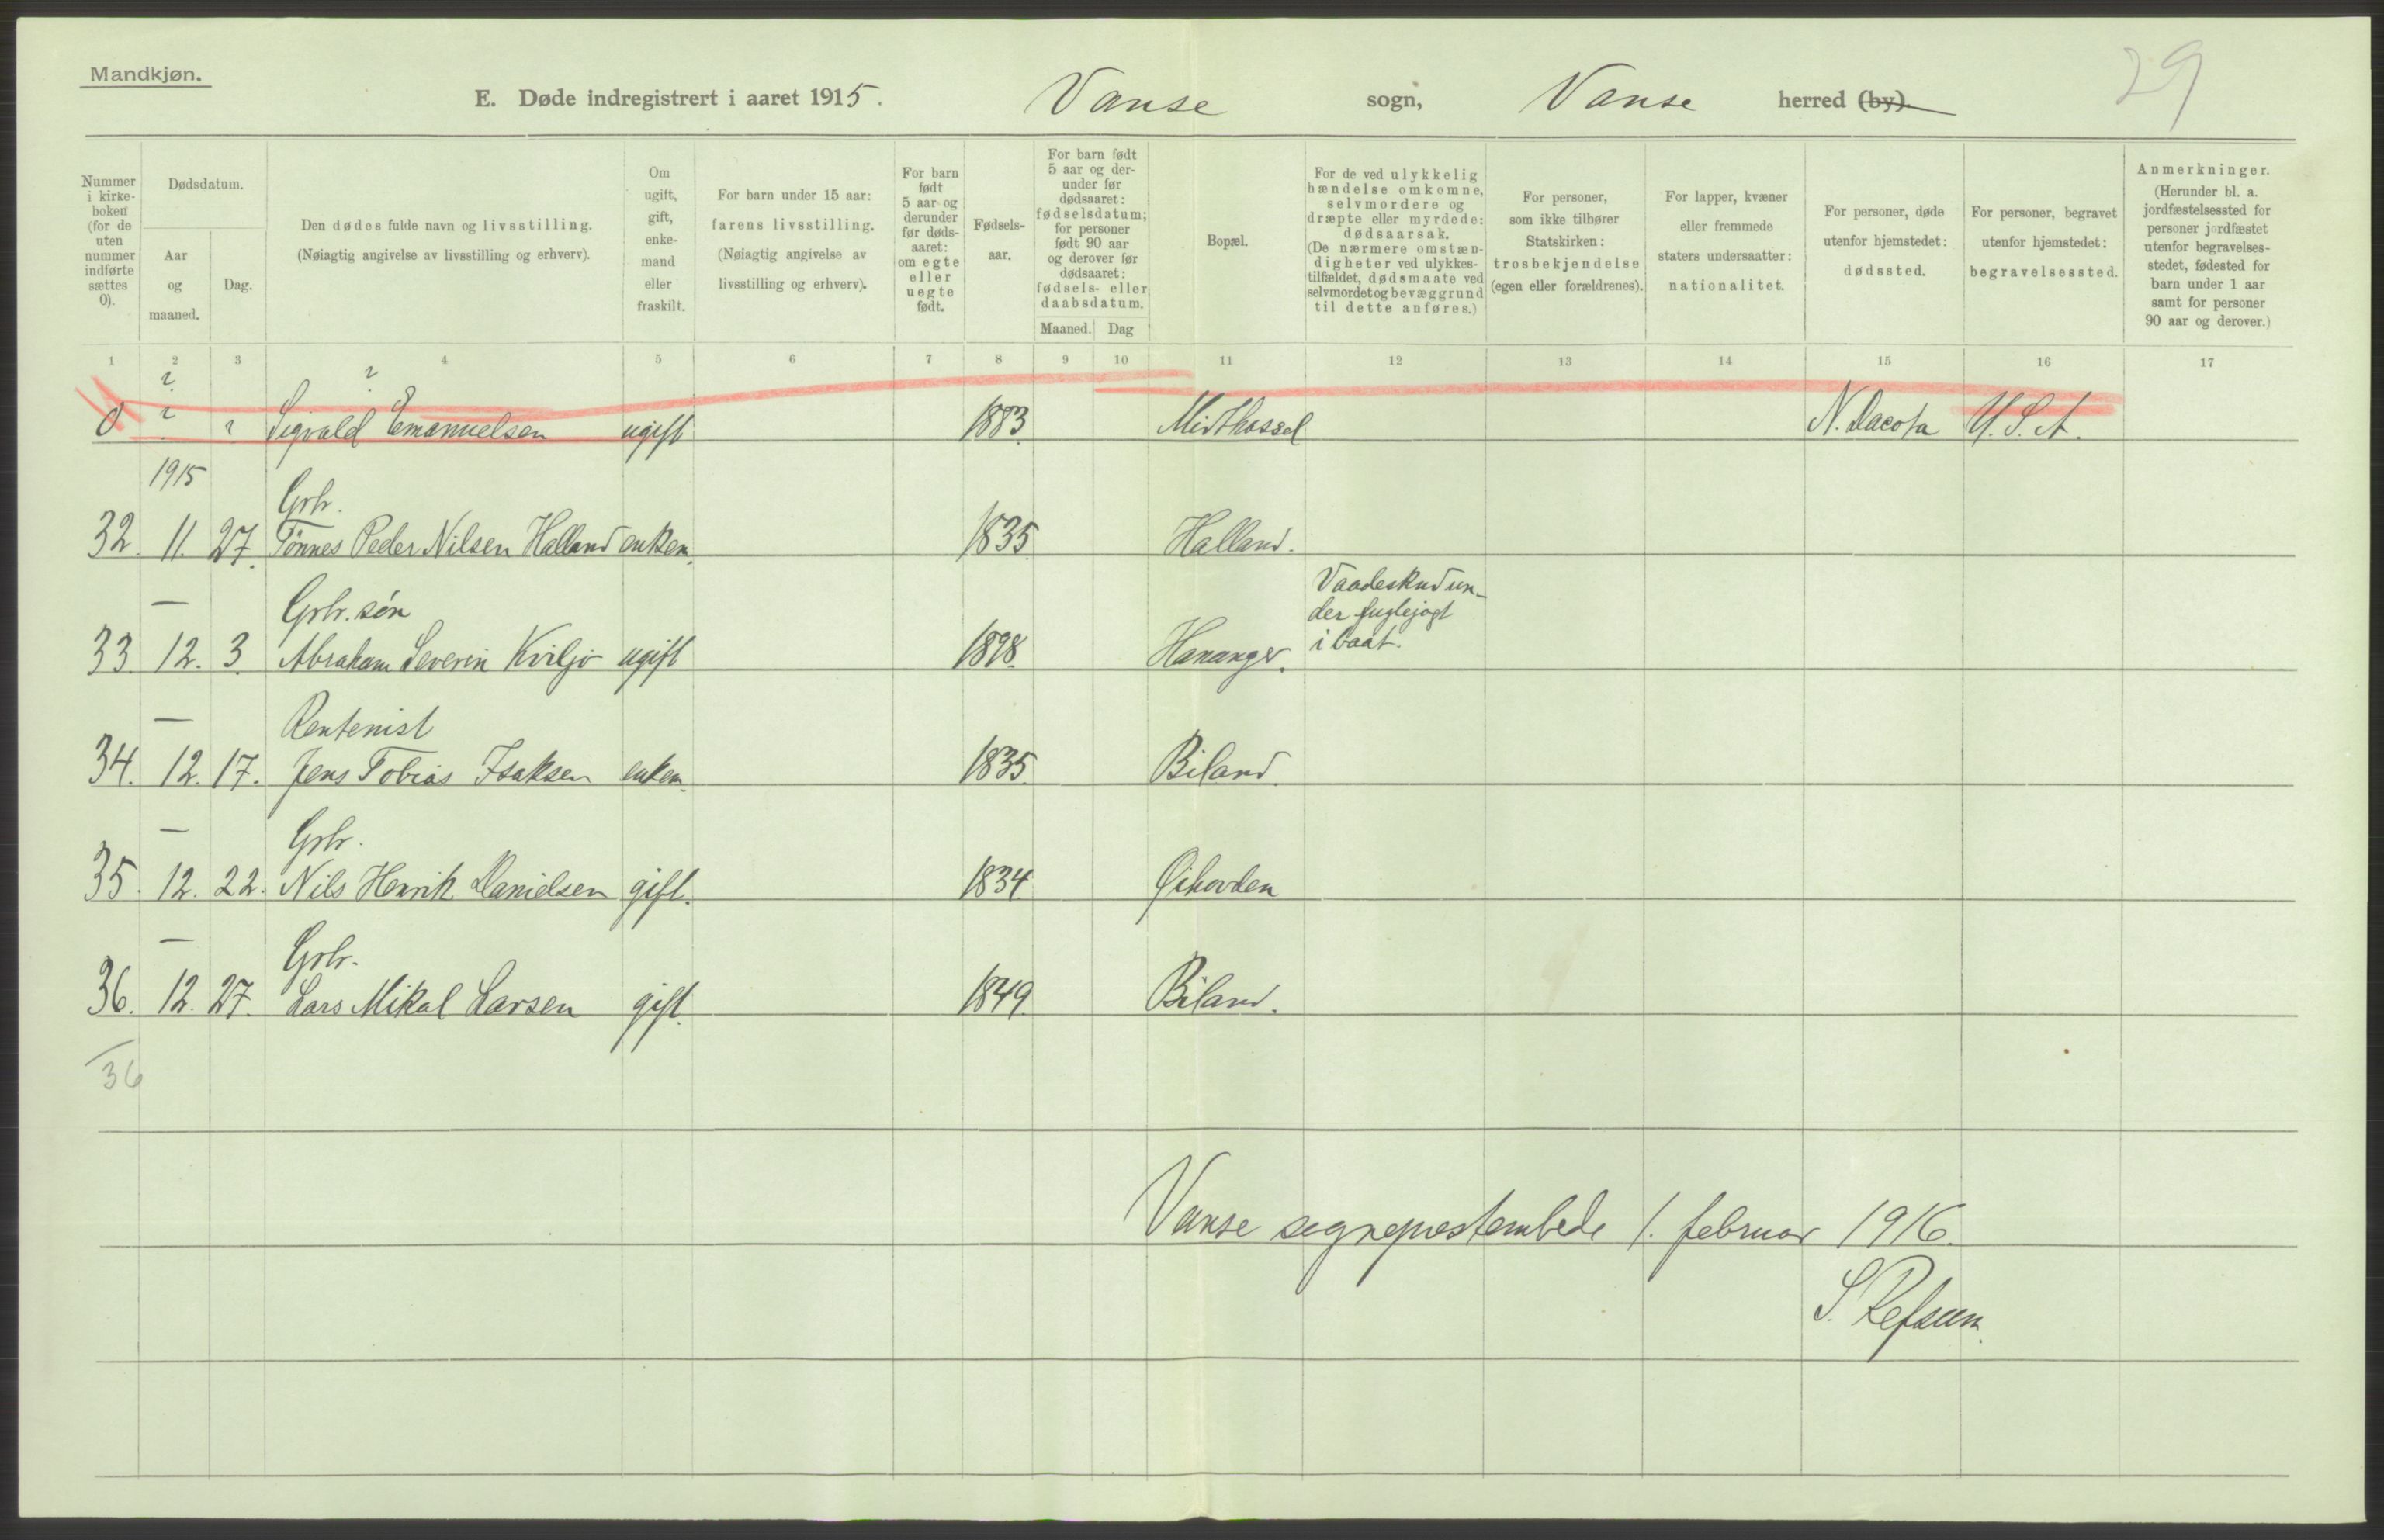 Mandkjøn.
E. Døde indregistrert i aaret 1915. Vanse sogn, Vanse herred (by).
29
Nummer i kirkeboken (for de uten nummer indførte sættes 0).
Dødsdatum.
Aar og maaned.
Dag.
Den dødes fulde navn og livsstilling.
(Nøiagtig angivelse av livsstilling og erhverv).
Om ugift, gift, enkemand eller fraskilt.
For barn under 15 aar:
farens livsstilling.
(Nøiagtig angivelse av livsstilling og erhverv).
For barn født 5 aar og derunder før dødsaaret: om egte eller uegte født.
Fødselsaar.
For barn født 5 aar og derunder før dødsaaret: fødselsdatum; for personer født 90 aar og derover før dødsaaret: fødsels- eller daabsdatum.
Maaned. Dag
Bopæl.
For de ved ulykkelig hændelse omkomne, selvmordere og dræpte eller myrdede: dødsaarsak.
(De nærmere omstændigheter ved ulykkestilfældet, dødsmaate ved selvmordet og bevæggrund til dette anføres.)
For personer, som ikke tilhører Statskirken: trosbekjendelse (egen eller forældrenes).
For lapper, kvæner eller fremmede staters undersaatter: nationalitet.
For personer, døde utenfor hjemstedet: dødssted.
For personer, begravet utenfor hjemstedet: begravelsessted.
Anmerkninger.
(Herunder bl. a. jordfæstelsessted for personer jordfæstet utenfor begravelsesstedet, fødested for barn under 1 aar samt for personer 90 aar og derover.)
1 2 3 4 5 6 7 8 9 10 11 12 13 14 15 16 17
? ?
0 ? ? Sigvald Emanuelsen ugift 1883 Midthassel N. Dacota U.S.A.
1915 Grbr.
32. 11. 27. Tønnes Peder Nilsen Halland enkem. 1835 Halland.
— Grbr. søn
33. 12. 3. Abraham Severin Kviljo ugift 1898. Hananger. Vaadeskud under fuglejagt i baat.
— Rentenist
34. 12. 17. Jens Tobias Isaksen enkem. 1835. Biland.
— Grbr.
35. 12. 22. Nils Henrik Danielsen gift. 1834. Øihovden
— Grbr.
36. 12. 27. Lars Mikal Larsen gift. 1849. Biland.
36
Vanse sogneprestembede 1. februar 1916.
S. Refsum.